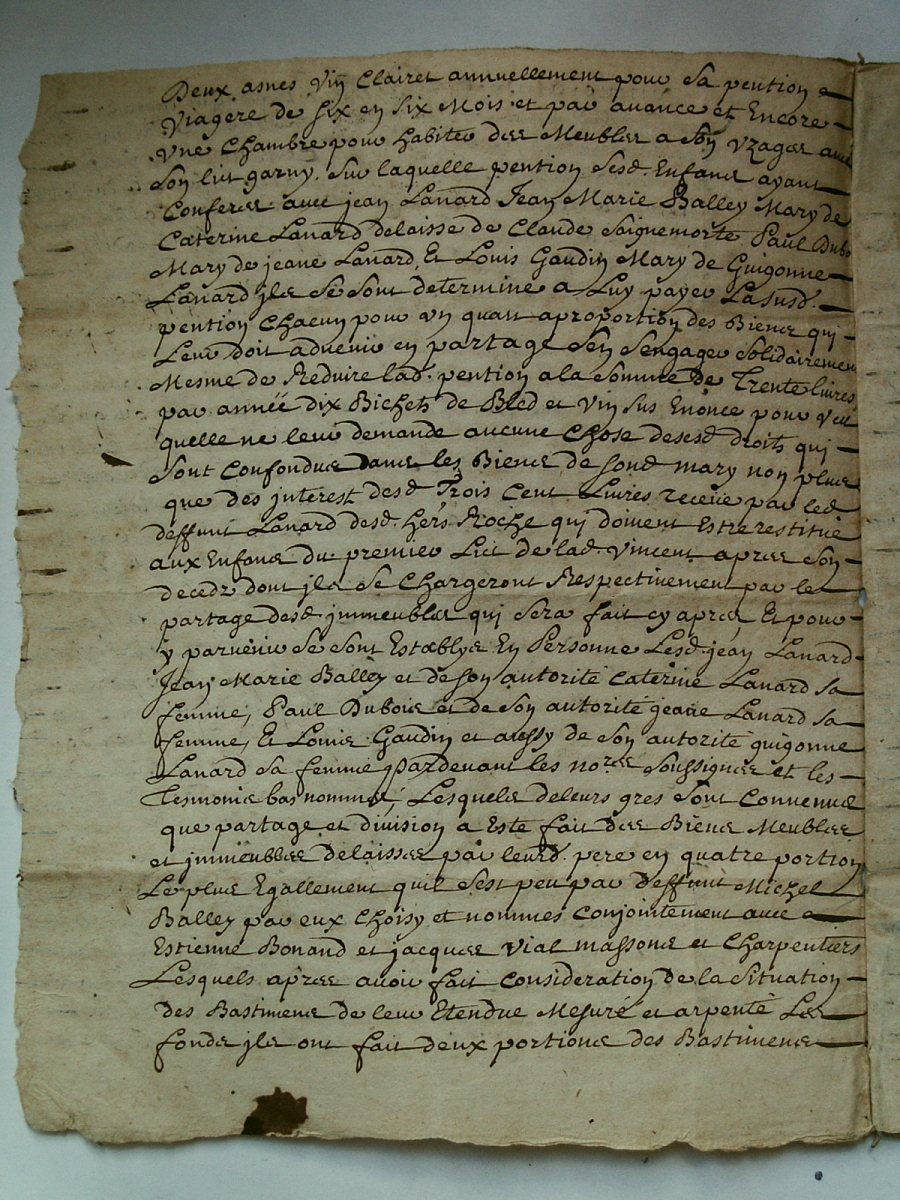 Deux asnes Vin Clairet annuellement pour sa pention
Viagere de six en six Mois et par avance et Encore
Une Chambre pour habiter des Meubles a Son Uzages avec
Son lict garny. Sur laquelle pention sesd. Enfans ayant
Conferes avec jean Lanard Jean Marie Balley Mary de
Caterine Lanard delaisse de Claude Saignemorte Paul Dubo
Mary de jeane Lanard, Et Louis Gaudin Mary de Guigonne
Lanard ils Se Sont determine a Luy payer La susd.
pention Chacun pour un quart a proportion des Biens qui
Leur doit advenir en partage S'en S'engager Solidairement
Mesme de Reduire lad. pention a la Somme de Trente livres
par année dix Bichets de Bled et Vin sus Enonce pour veu
quelle ne leur demande aucune Chose desesd. droits qui
Sont Confondus dans les Biens de sond. mary non plus
que des interest desd. Trois Cent Livres receüe par led.
deffunt Lanard desd. hers Roche qui doivent Estre restitué
aux Enfans du premier Lict de lad. Vincent apres Son
decedz dont ils Se Chargeront Respectivement par le
partage desd. immeubles qui Sera fait cy apres, Et pour
y parvenir Se Sont Establys En Personne Lesd. jean Lanard
Jean Marie Balley et de son autorité Caterine Lanard sa
femme, Paul Dubois et de Son autorité jeane Lanard sa
femme, Et Louis Gaudin et aussy de Son autorité guigonne
Lanard Sa femme Pardevant les nores Soussignes et les
Tesmoins bas nommes, Lesquels de leurs gres Sont Convenus
que partage et division a Este fait des Biens Meubles
et immeubles delaisses par leurd. pere en quatre portion
Le plus Egallement quil Sest peu par deffunt Michel
Balley par eux Choisy et nommes Conjointement avec
Estienne Bonand et jacques Vial massons et Charpentiers
Lesquels apres avoir fait Consideration de la Situation
des Bastimens de leur Etendue Mesuré et arpenté Les
fonds ils ont fait deux portions des Bastimens